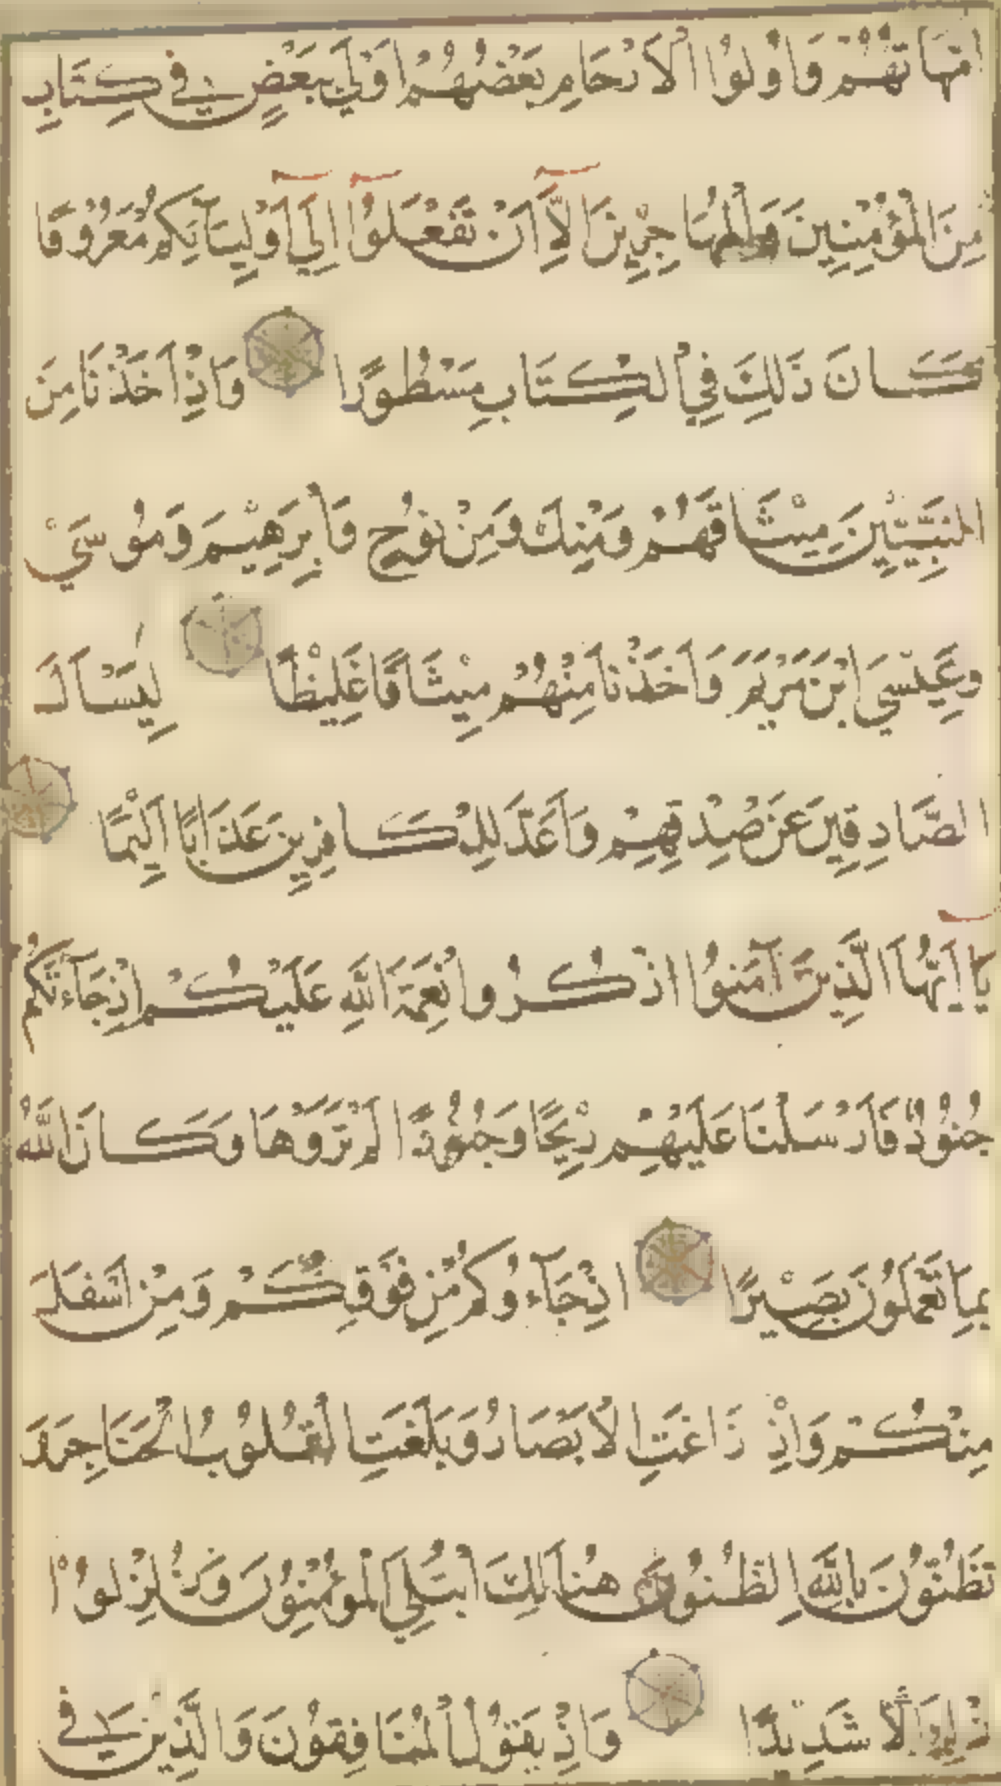 اُمَّهَاتُهُمْ وَاُولُوا الْاَرْحَامِ بَعْضُهُمْ اَوْلٰي بِبَعْضٍ فِي كِتَابِ
مِنَ الْمُؤْمِنِينَ وَالْمُهَاجِرِينَ اِلَّا اَنْ تَفْعَلُوا اِلَي اَوْلِيَآئِكُمْ مَعْرُوفًا
كَانَ ذَلِكَ فِي الْكِتَابِ مَسْطُورًا وَاِذْ اَخَذْنَا مِنَ
النَّبِيّٖنَ مِيْثَاقَهُمْ وَمِنْكَ وَمِنْ نُوْحٍ وَاِبْرَهِيْمَ وَمُوسَيْ
وَعِيْسَي ابْنِ مَرْيَمَ وَاَخَذْنَا مِنْهُمْ مِيْثَاقًا غَلِيْظًا لِيَسْاَلَ
الصَّادِقِينَ عَنْ صِدْقِهِمْ وَاَعَدَّ لِلْكَافِرِينَ عَذَابًا اَلِيْمًا
يَا اَيُّهَا الَّذِينَ آمَنُوا اذْكُرُوا نِعْمَةَ اللّٰهِ عَلَيْكُمْ اِذْ جَآءَتْكُمْ
جُنُوْدٌ فَاَرْسَلْنَا عَلَيْهِمْ رِيْحًا وَجُنُوْدًا لَمْ تَرَوْهَا وَكَانَ اللّٰهُ
بِمَا تَعْمَلُوْنَ بَصِيْرًا اِذْ جَآءُوكُمْ مِنْ فَوْقِكُمْ وَمِنْ اَسْفَلَ
مِنْكُمْ وَاِذْ زَاغَتِ الْاَبْصَارُ وَبَلَغَتِ الْقُلُوْبُ الْحَنَاجِرَ وَ
تَظُنُّوْنَ بِاللّٰهِ الظُّنُوْنَ هُنَالِكَ ابْتُلِيَ الْمُوْمِنُوْنَ وَزُلْزِلُوْا
زِلْزَالًا شَدِيْدًا وَاِذْ يَقُوْلُ الْمُنَافِقُوْنَ وَالَّذِيْنَ فِي